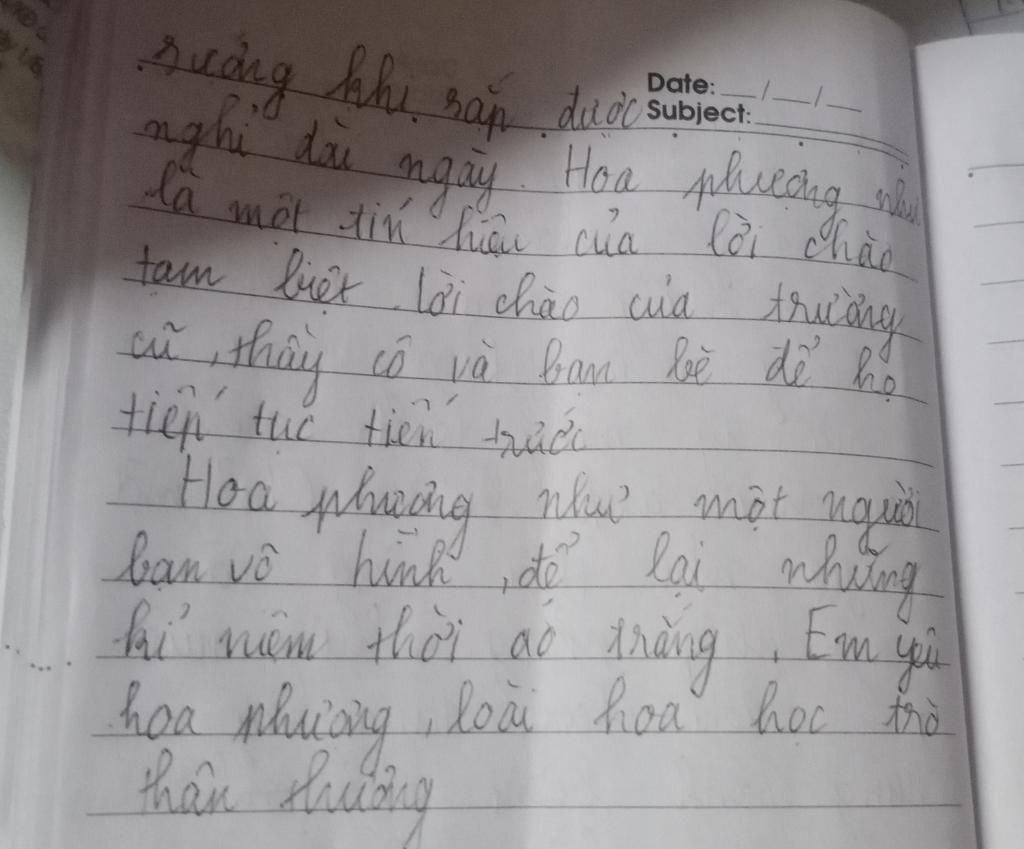 sướng khi sắp được
Date: __/__/__
Subject:
nghỉ dài ngày. Hoa phượng như
là một tín hiệu của lời chào
tạm biệt. lời chào của trường
cũ, thầy cô và bạn bè để họ
tiếp tục tiến trước
Hoa phượng như một người
bạn vô hình, để lại những
kỉ niệm thời áo trắng. Em yêu
hoa phượng, loài hoa học trò
thân thương